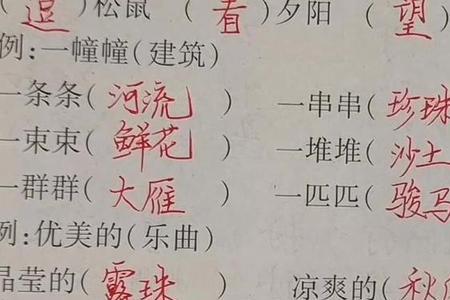 (逗)松鼠 (看)夕阳 (望)
例:一幢幢(建筑)
一条条(河流) 一串串(珍珠
一束束(鲜花) 一堆堆(沙土
一群群(大雁) 一匹匹(骏马
例:优美的(乐曲)
晶莹的(露珠) 凉爽的(秋